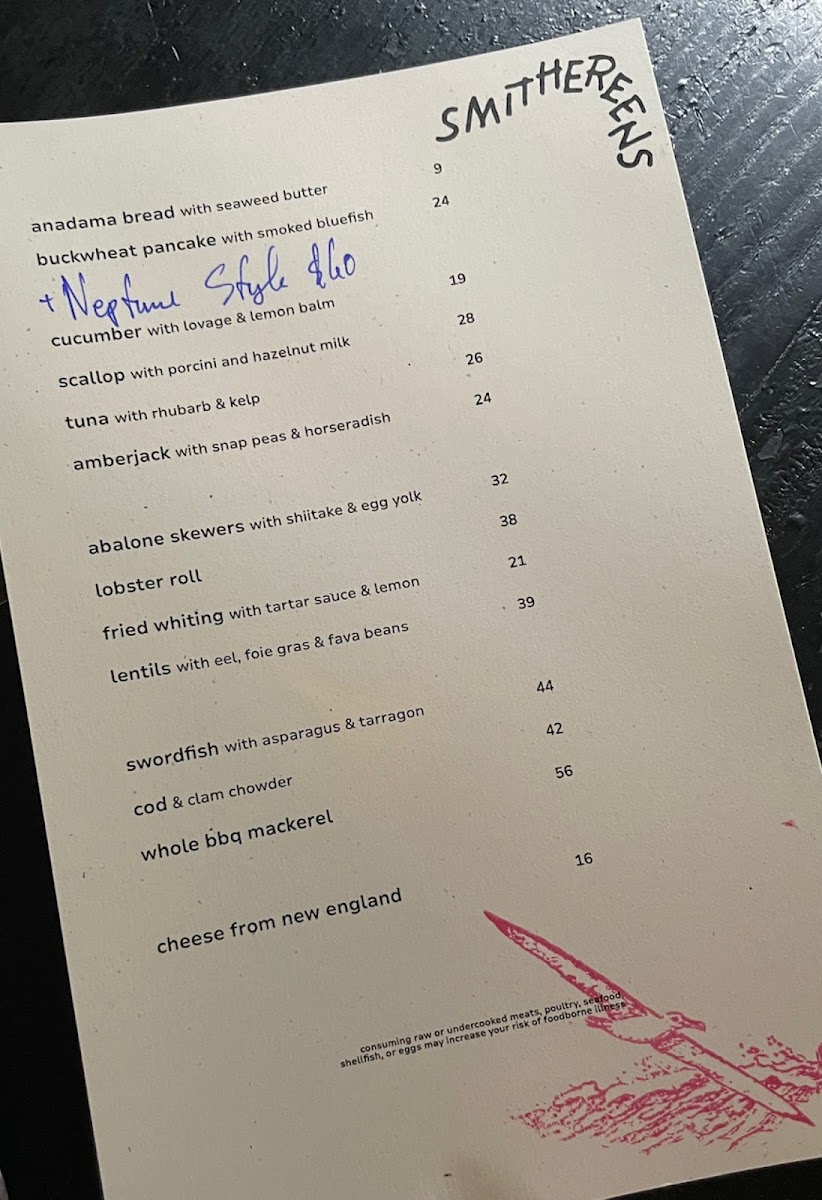 SMITHEREENS
anadama bread with seaweed butter 9
buckwheat pancake with smoked bluefish 24
+ Neptune Style $60
cucumber with lovage & lemon balm 19
scallop with porcini and hazelnut milk 28
tuna with rhubarb & kelp 26
amberjack with snap peas & horseradish 24
abalone skewers with shiitake & egg yolk 32
lobster roll 38
fried whiting with tartar sauce & lemon 21
lentils with eel, foie gras & fava beans 39
swordfish with asparagus & tarragon 44
cod & clam chowder 42
whole bbq mackerel 56
cheese from new england 16
consuming raw or undercooked meats, poultry, seafood,
shellfish, or eggs may increase your risk of foodborne illness